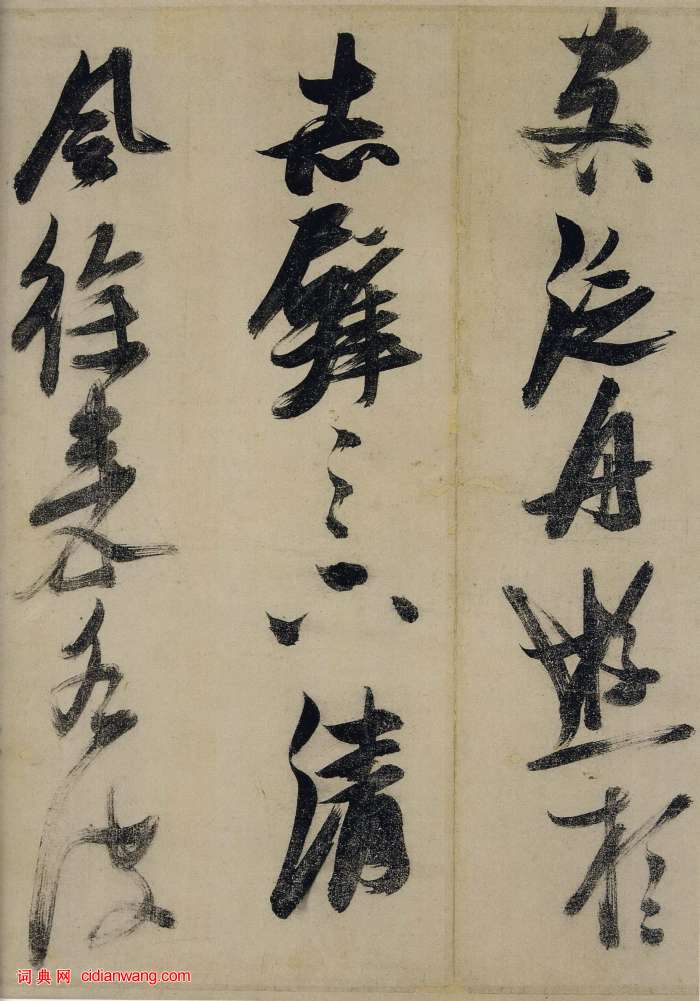 客泛舟遊於
赤壁之下清
風徐來水波
词典网 cidianwang.com